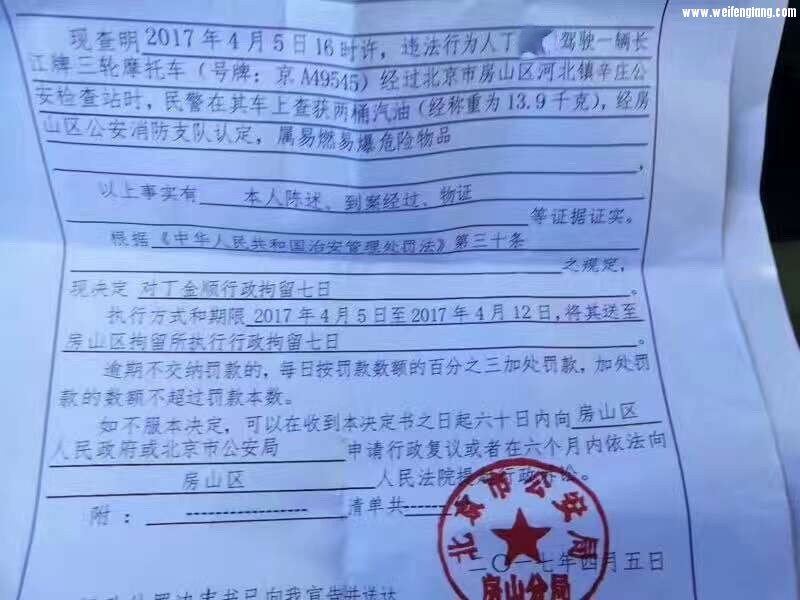 www.weifengtang.com
现查明2017年4月5日16时许，违法行为人丁 驾驶一辆长
江牌三轮摩托车（号牌：京A49545）经过北京市房山区河北镇辛庄公
安检查站时，民警在其车上查获两桶汽油（经称重为13.9千克），经房
山区公安消防支队认定，属易燃易爆危险物品
。
以上事实有 本人陈述、到案经过、物证
等证据证实。
根据《中华人民共和国治安管理处罚法》第三十条
之规定，
现决定 对丁金顺行政拘留七日。
执行方式和期限 2017年4月5日至2017年4月12日，将其送至
房山区拘留所执行行政拘留七日。
逾期不交纳罚款的，每日按罚款数额的百分之三加处罚款，加处罚
款的数额不超过罚款本数。
如不服本决定，可以在收到本决定书之日起六十日内向 房山区
人民政府或北京市公安局 申请行政复议或者在六个月内依法向
房山区 人民法院提起行政诉讼。
附： ---------------- 清单共------
北京市公安局
房山分局
二〇一七年四月五日
决定书已向我宣告并送达